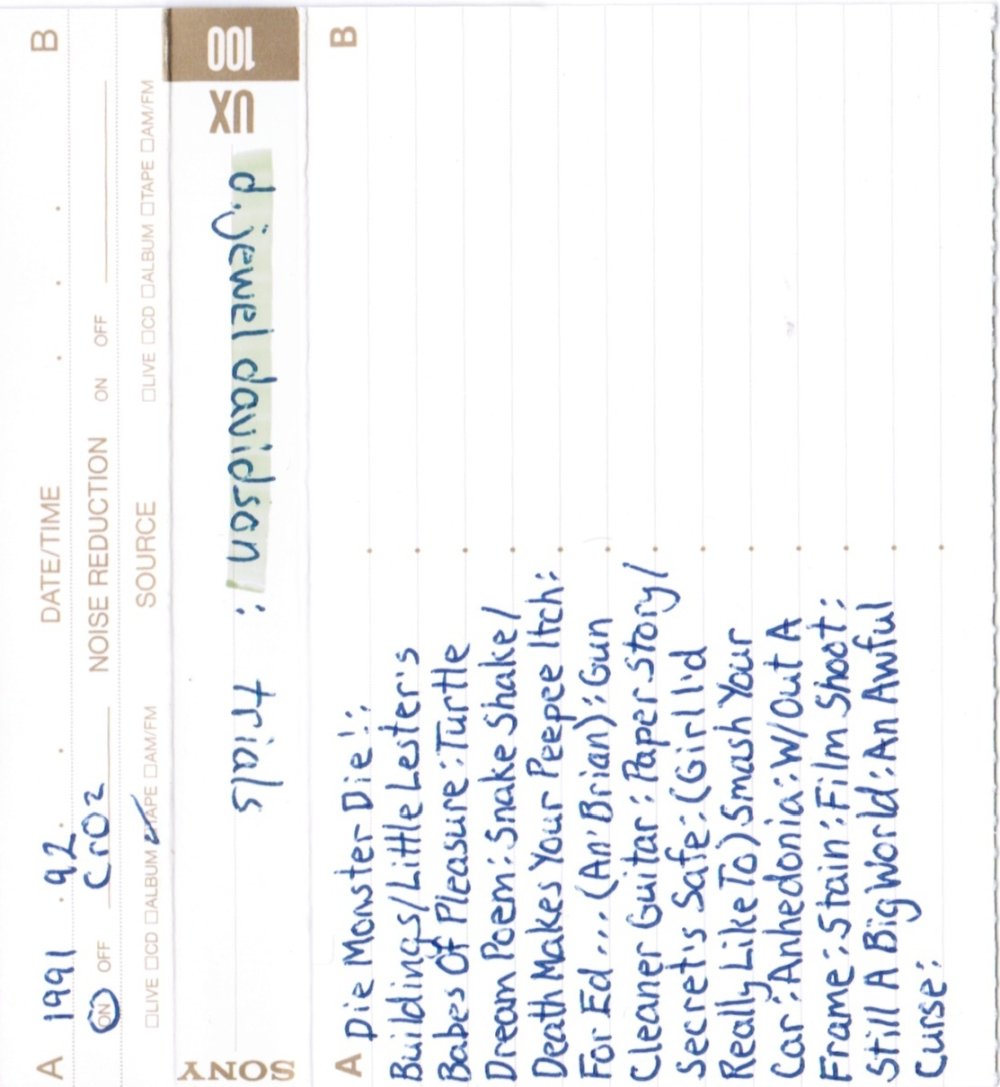 A 1991 . 92 . DATE/TIME B
ON OFF CrO2 NOISE REDUCTION ON OFF
□LIVE □CD □ALBUM ☑TAPE □AM/FM SOURCE □LIVE □CD □ALBUM □TAPE □AM/FM
SONY UX 100
d. jewel davidson : trials
A B
Die Monster Die!:
Buildings/Little Lester's
Babes Of Pleasure: Turtle
Dream Poem: Snake Shake/
Death Makes Your Peepee Itch:
For Ed... (An' Brian): Gun
Cleaner Guitar: Paper story/
Secret's Safe: (Girl I'd
Really Like To) Smash Your
Car: Anhedonia: W/Out A
Frame: Stain: Film Shoot:
Still A Big World: An Awful
Curse: